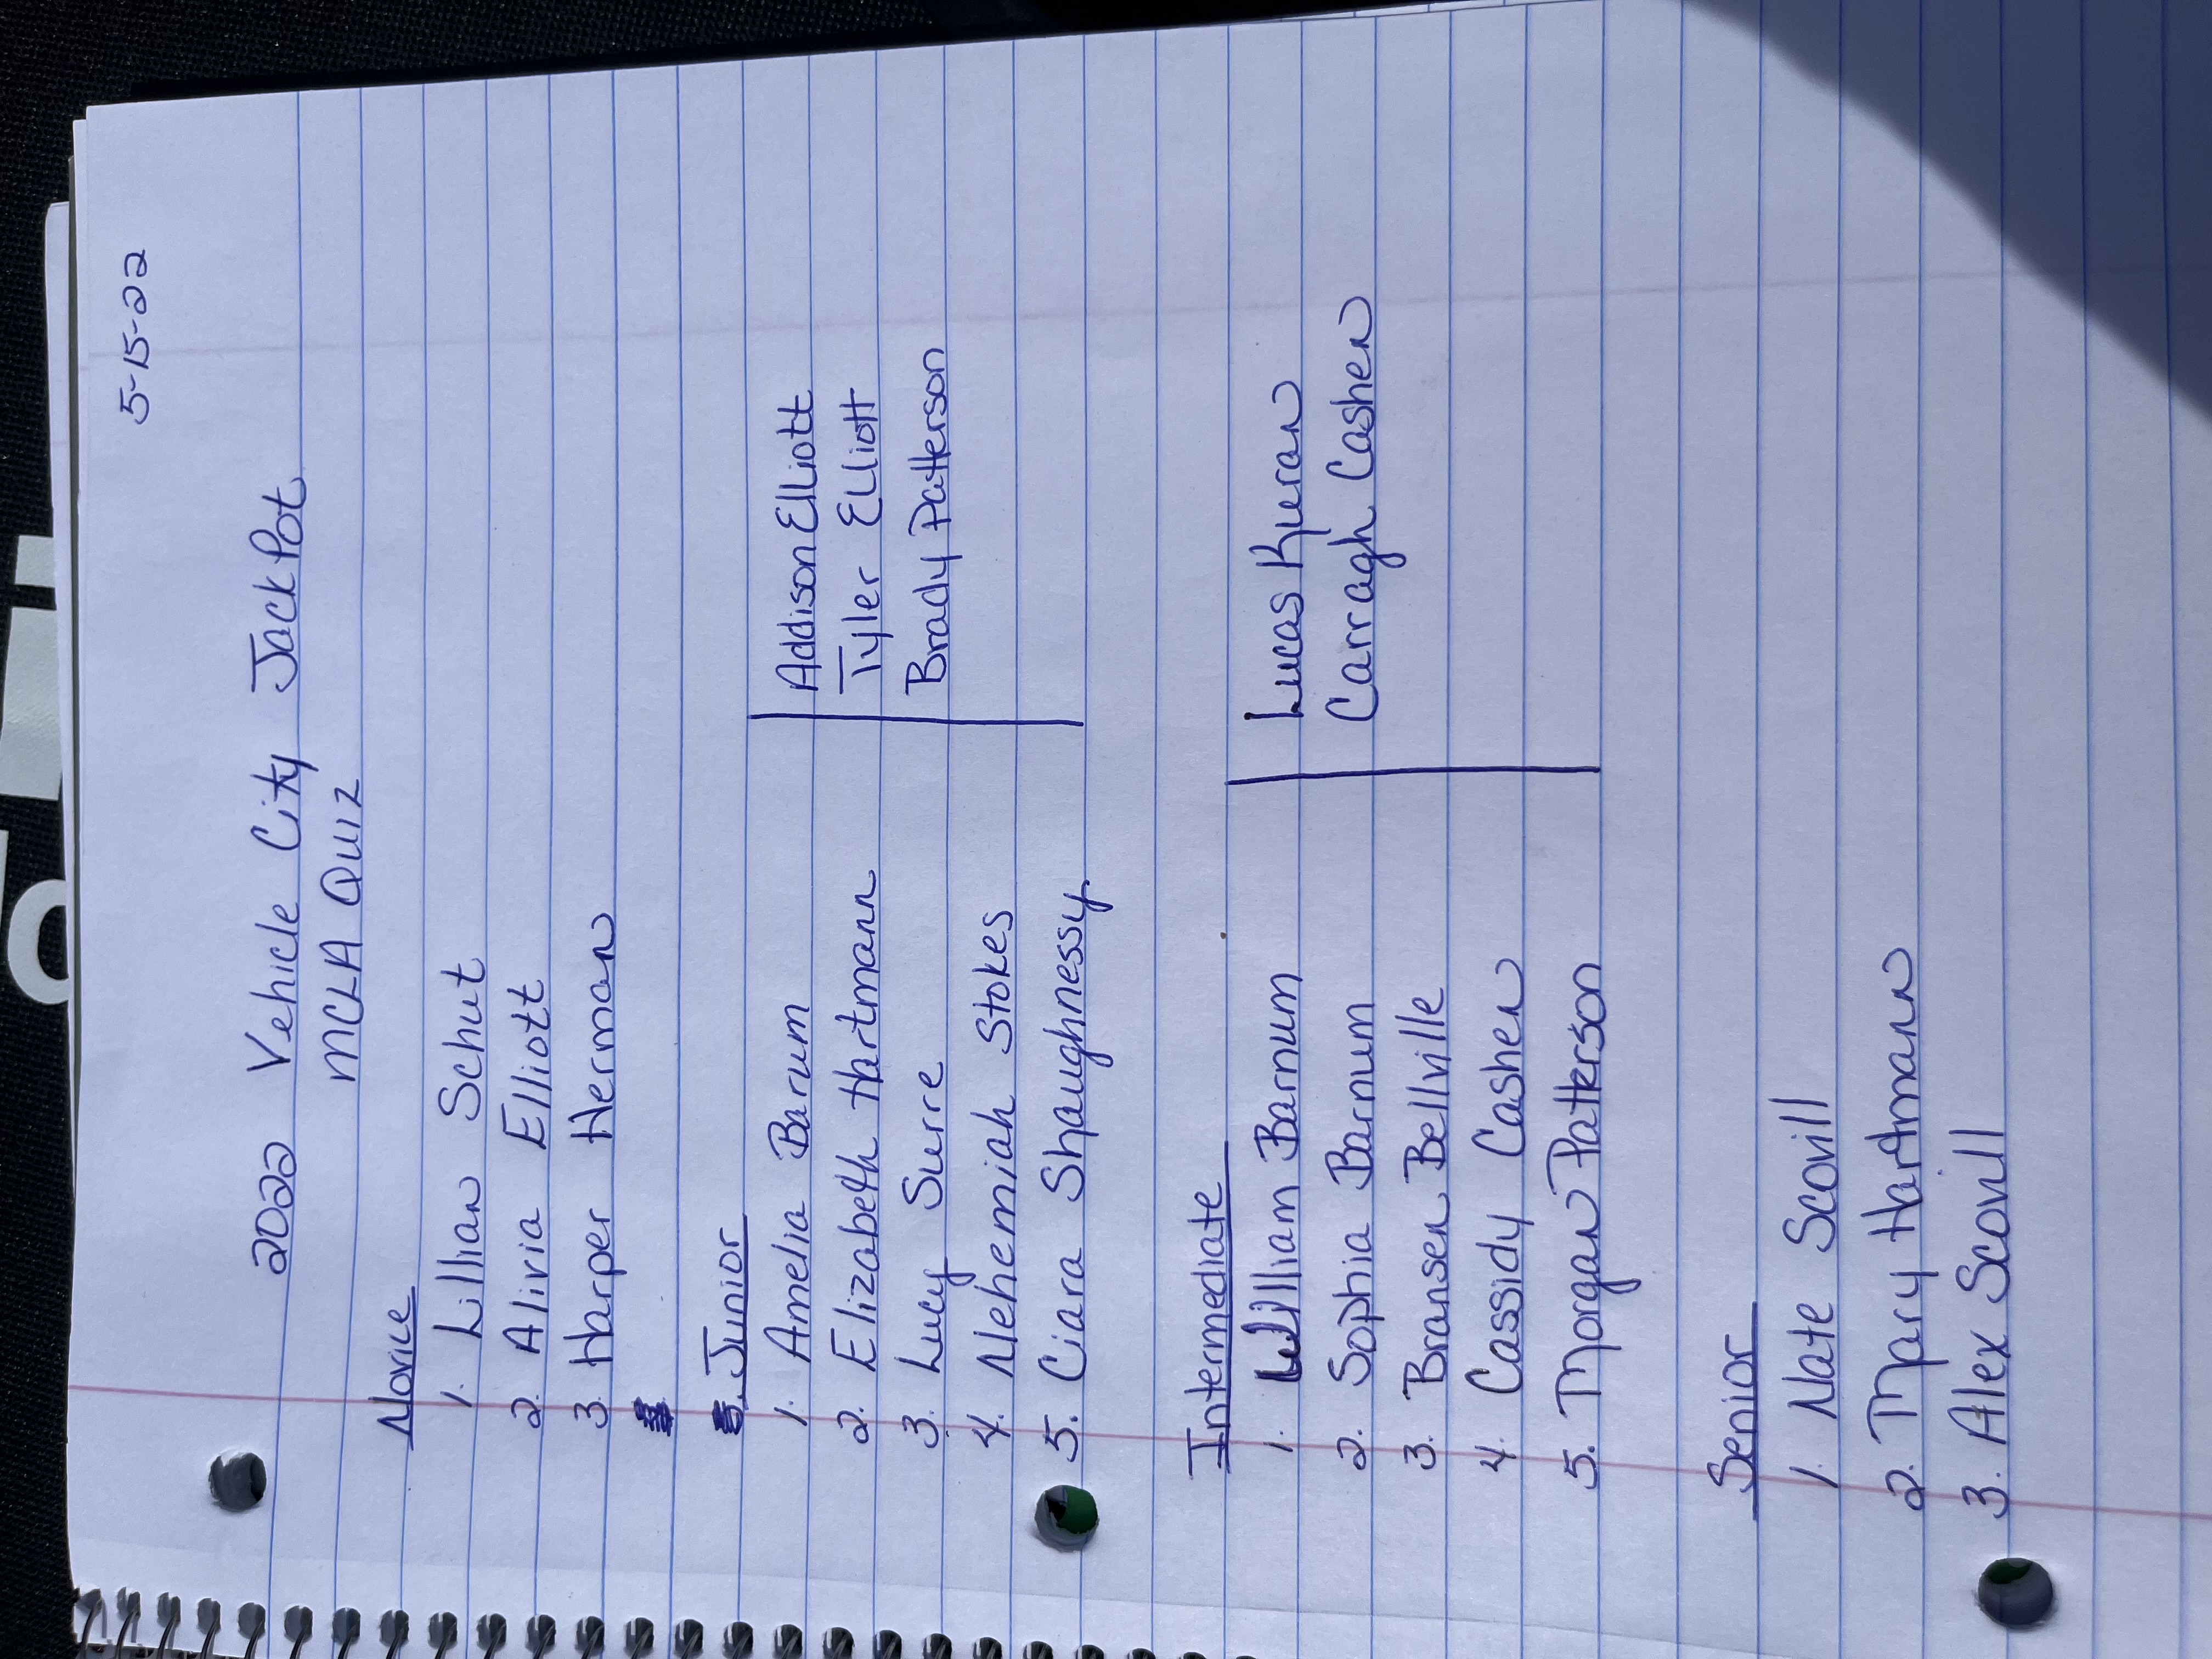 5-15-22
2022 Vehicle City Jackpot
MCLA Quiz
Novice
1. Lillian Schut
2. Alivia Elliott
3. Harper Herman
Junior
1. Amelia Barum
2. Elizabeth Hartmann
3. Lucy Surre
4. Nehemiah Stokes
5. Ciara Shaughnessy
Addison Elliott
Tyler Elliott
Brady Patterson
Intermediate
1. William Barnum
2. Sophia Barnum
3. Bransen Bellville
4. Cassidy Cashen
5. Morgan Patterson
Lucas Kuran
Carragh Cashen
Senior
1. Nate Scovill
2. Mary Hartmann
3. Alex Scovill